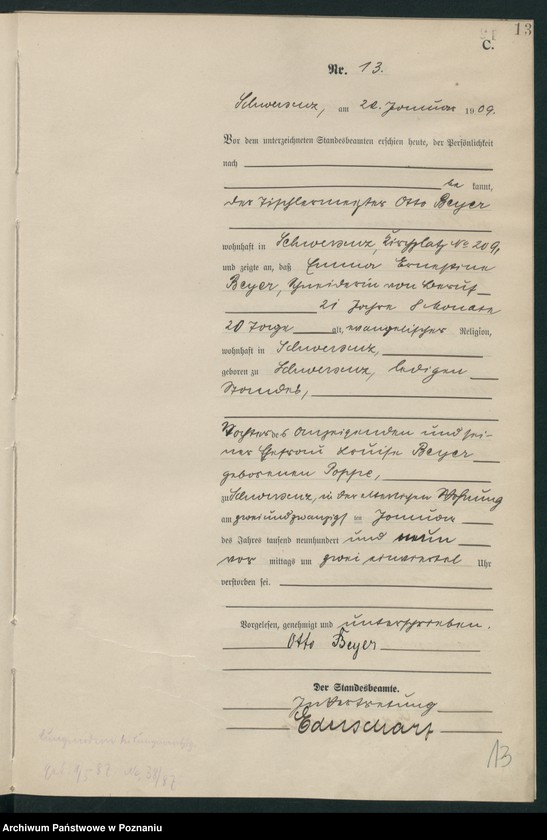 13
C.
Nr. 13.
Schwersenz, am 22. Januar 1909.
Vor dem unterzeichneten Standesbeamten erschien heute, der Persönlichkeit
nach
be kannt,
der Tischlermeister Otto Beyer
wohnhaft in Schwersenz, Kirchplatz No 209,
und zeigte an, daß Emma Ernestine
Beyer, Schneiderin von Beruf
21 Jahre 8 Monate
20 Tage alt, evangelischer Religion,
wohnhaft in Schwersenz,
geboren zu Schwersenz, ledigen
Standes,
Tochter des Anzeigenden und sei-
ner Ehefrau Louise Beyer
geborenen Poppe,
zu Schwersenz, in der elterlichen Wohnung
am zweiundzwanzigsten Januar
des Jahres tausend neunhundert und neun
vor mittags um zwei einviertel Uhr
verstorben sei.
Vorgelesen, genehmigt und unterschrieben.
Otto Beyer
Der Standesbeamte.
In Vertretung
13
Archiwum Państwowe w Poznaniu